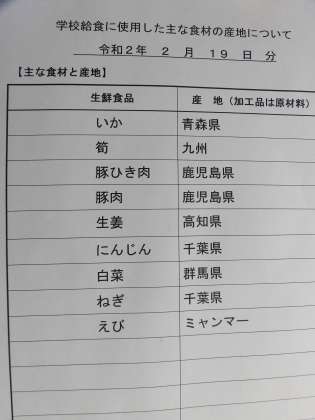 学校給食に使用した主な食材の産地について
令和2年 2 月 19 日 分
【主な食材と産地】
生鮮食品 産 地（加工品は原材料）
いか 青森県
筍 九州
豚ひき肉 鹿児島県
豚肉 鹿児島県
生姜 高知県
にんじん 千葉県
白菜 群馬県
ねぎ 千葉県
えび ミャンマー